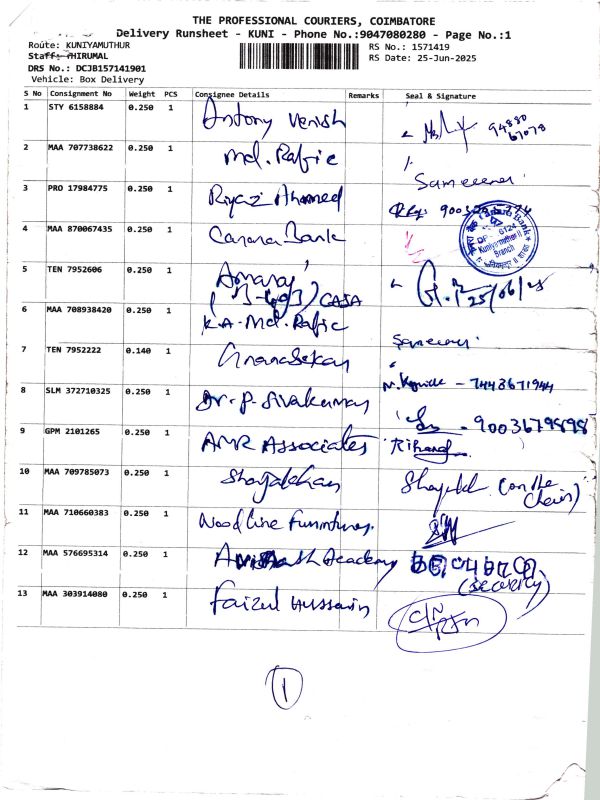 THE PROFESSIONAL COURIERS, COIMBATORE
Delivery Runsheet - KUNI - Phone No.:9047080280 - Page No.:1
Route: KUNIYAMUTHUR
RS No.: 1571419
Staff: THIRUMAL
RS Date: 25-Jun-2025
DRS No.: DCJB157141901
Vehicle: Box Delivery
S No Consignment No Weight PCS Consignee Details Remarks Seal & Signature
1 STY 6158884 0.250 1 Antony Venish 94880
67078
2 MAA 707738622 0.250 1 Md. Rafic
Sameeena
3 PRO 17984775 0.250 1 Riyaz Ahamed
4 MAA 870067435 0.250 1 Canara Bank
Kuniyamuthur II
Branch
5 TEN 7952606 0.250 1 Amaraj 25/06/25
CASA
6 MAA 708938420 0.250 1 K.A. Md. Rafic
7 TEN 7952222 0.140 1 Gnanasekar
- 7443671944
8 SLM 372710325 0.250 1 Dr. P. Sivakumar
- 9003679898
9 GPM 2101265 0.250 1 AMR Associates
10 MAA 709785073 0.250 1 Shajakhan (on the
Chair)
11 MAA 710660383 0.250 1 Woodline Furnitures.
12 MAA 576695314 0.250 1 Academy
(Security)
13 MAA 303914080 0.250 1 Faizul Hussain
1